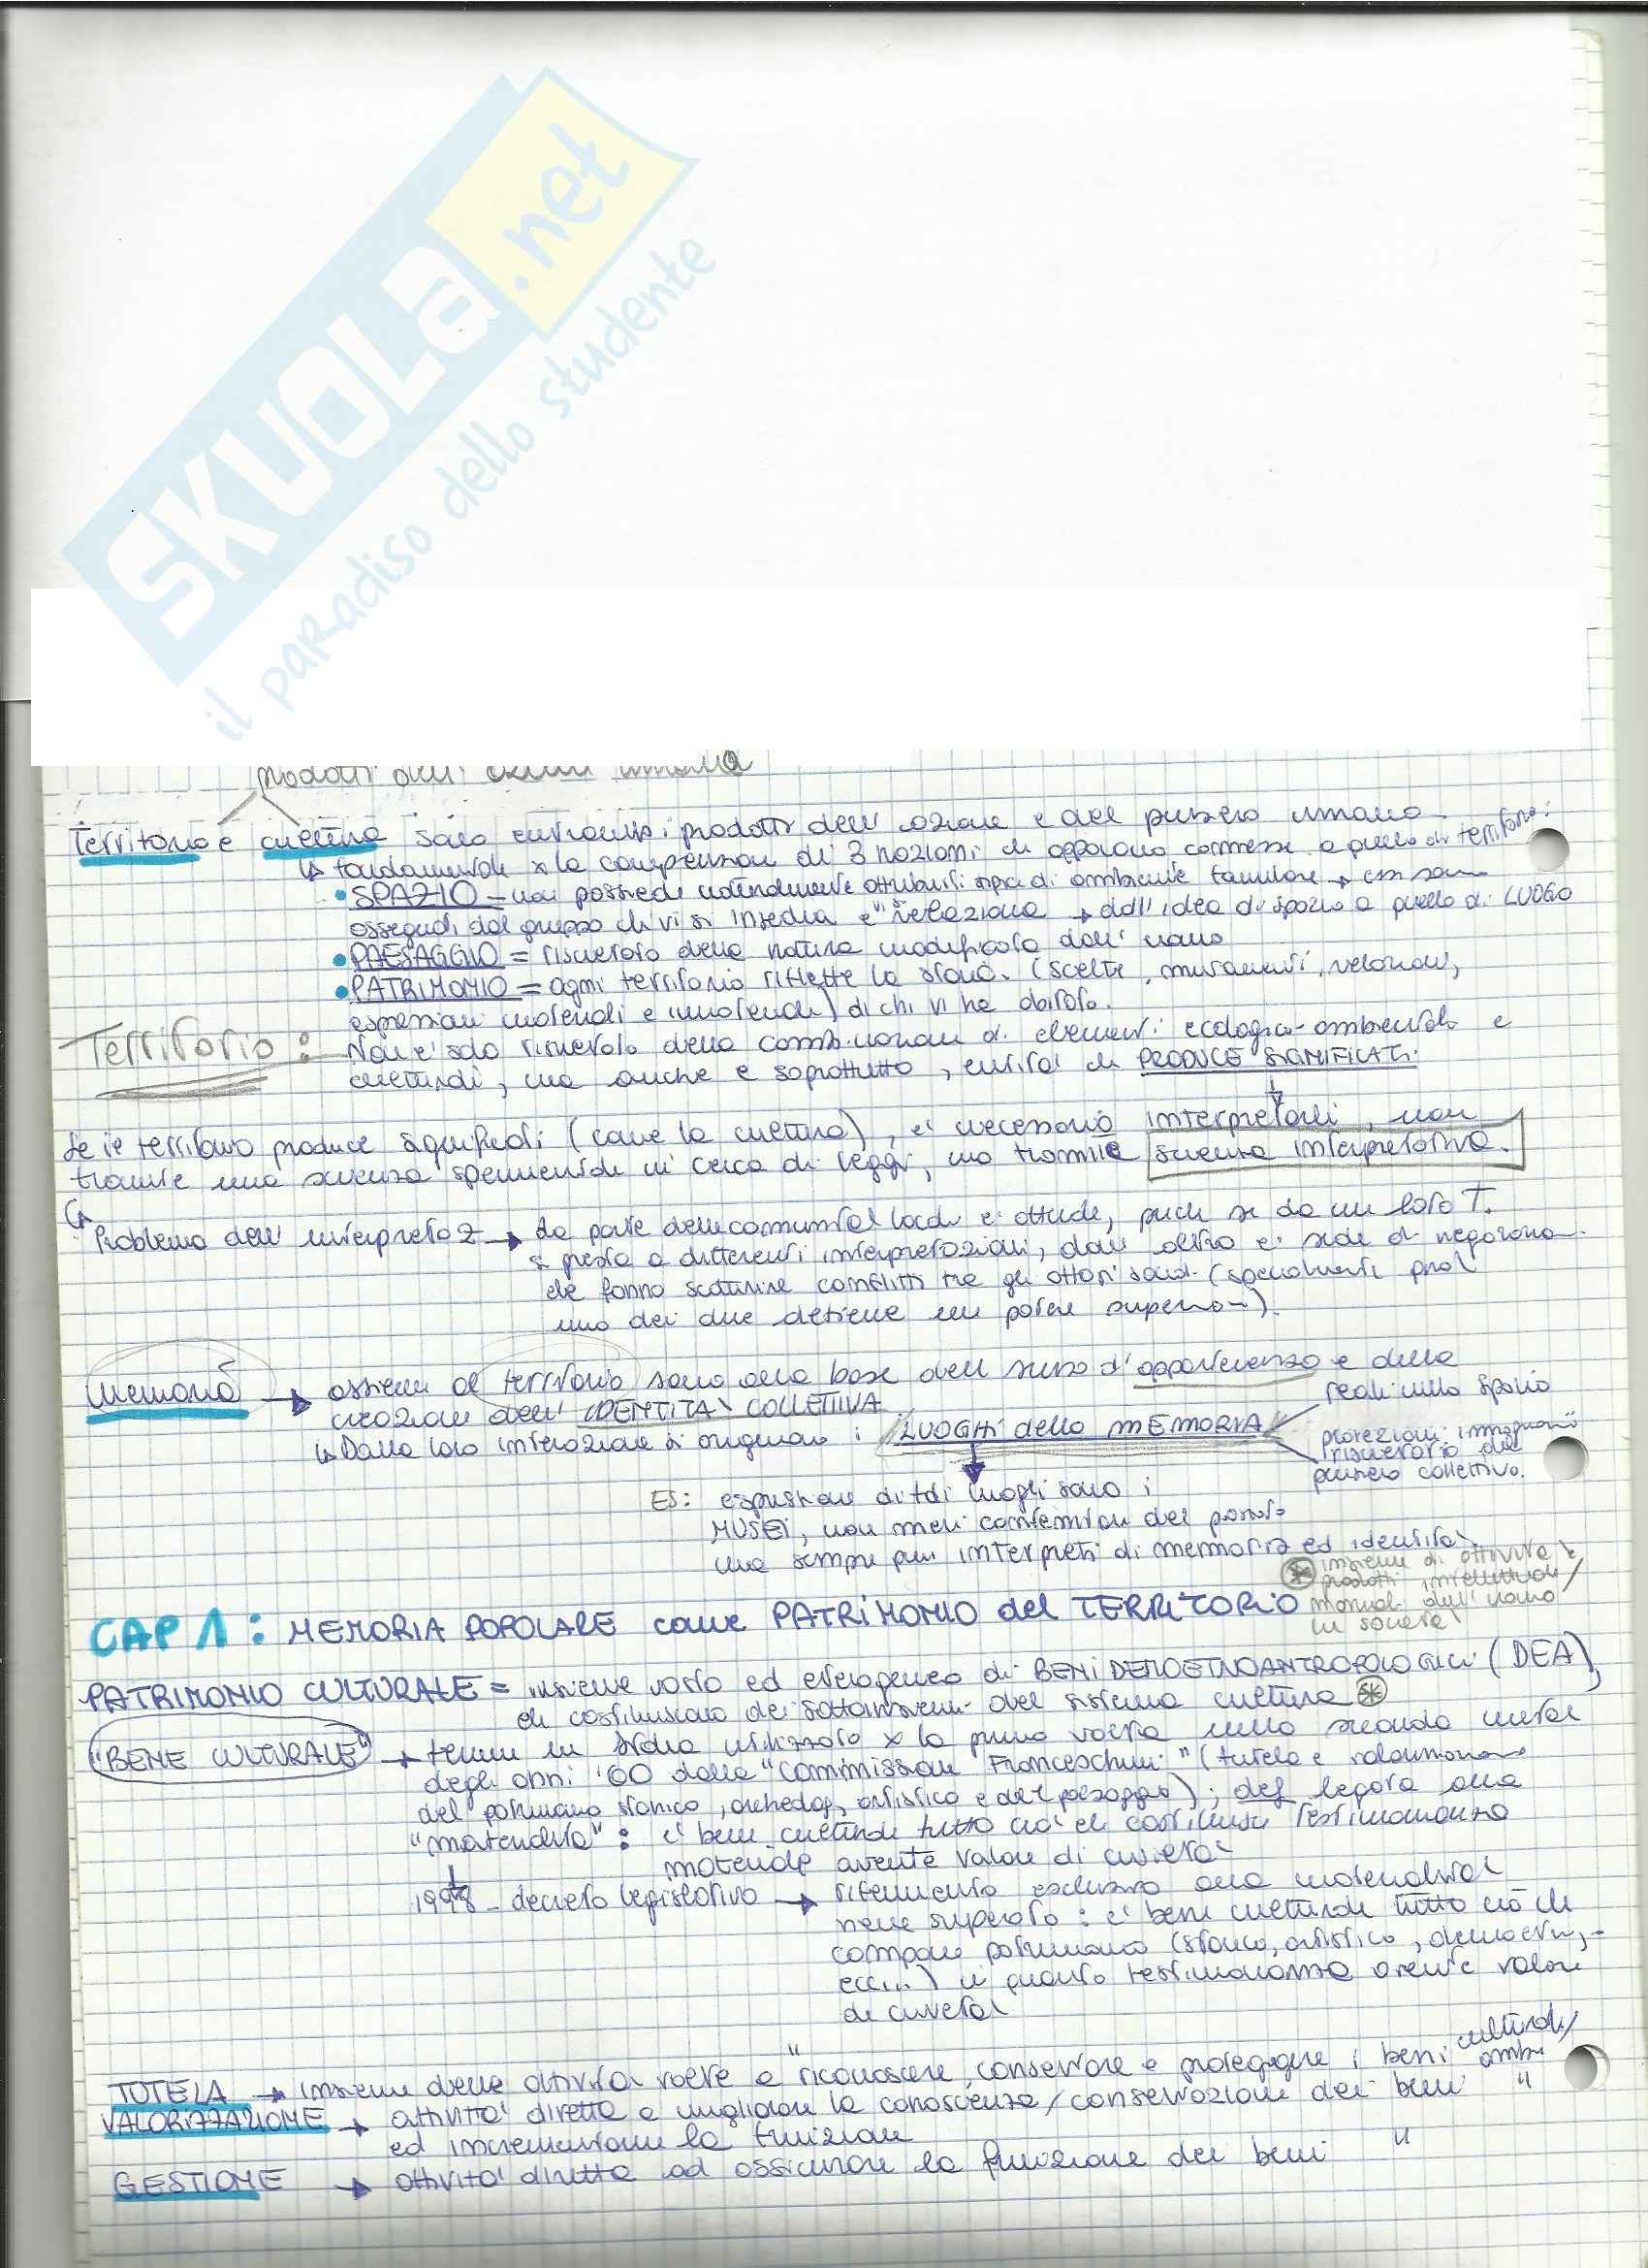 SKUOLA.net
il paradiso dello studente
prodotti dell'azione umana
Territorio e cultura sono entrambi prodotti dell'azione e del pensiero umano.
↳ fondamentale x la comprensione di 3 nozioni che appaiono connesse a quella di territorio:
• SPAZIO – non possiede naturalmente attributi tipici di ambiente familiare →
assegnati dal gruppo che vi si insedia e vi si relaziona → dall'idea di spazio a quella di LUOGO
• PAESAGGIO = risultato della natura modificata dall'uomo
• PATRIMONIO = ogni territorio riflette la storia (scelte, mutamenti, relazioni,
espressioni materiali e immateriali) di chi vi ha abitato.
Territorio: Non è solo risultato della combinazione di elementi ecologico-ambientali e
culturali, ma anche e soprattutto, entità che PRODUCE SIGNIFICATI.
Se il territorio produce significati (come la cultura), è necessario interpretarli, non
tramite una scienza sperimentale in cerca di leggi, ma tramite scienza interpretativa.
Problema dell'interpretaz → da parte delle comunità locali è attuale, perché se da un lato T.
si presta a differenti interpretazioni, dall'altro è sede di negoziazioni
che fanno scaturire conflitti tra gli attori sociali (specialmente quando
uno dei due detiene un potere superiore).
Memoria → assieme al territorio sono alla base del senso d'appartenenza e della
creazione dell'IDENTITÀ COLLETTIVA
↳ Dalla loro interazione si originano i LUOGHI della MEMORIA
reali nello spazio
proiezioni immaginarie
risultato del
pensiero collettivo.
ES: espressione di tali luoghi sono i
MUSEI, non meri contenitori del passato
ma sempre più interpreti di memoria ed identità.
* insieme di attività e
prodotti intellettuali/
manuali dell'uomo
in società
CAP 1: MEMORIA POPOLARE come PATRIMONIO del TERRITORIO
PATRIMONIO CULTURALE = insieme vasto ed eterogeneo di BENI DEMOETNOANTROPOLOGICI (DEA),
che costituiscono dei sottoinsiemi del sistema cultura *
"BENE CULTURALE" → termine in Italia utilizzato x la prima volta nella seconda metà
degli anni '60 dalla "Commissione Franceschini" (tutela e valorizzazione
del patrimonio storico, archeolog, artistico e del paesaggio); def legata alla
"materialità": è bene culturale tutto ciò che costituisce testimonianza
materiale avente valore di civiltà
1998 – decreto legislativo → riferimento esclusivo alla materialità
viene superato: è bene culturale tutto ciò che
compone patrimonio (storico, artistico, demoetn,
ecc...) in quanto testimonianza avente valore
di civiltà
TUTELA → insieme delle attività volte a riconoscere, conservare e proteggere i beni culturali/
amb
VALORIZZAZIONE → attività diretta a migliorare la conoscenza/conservazione dei beni "
ed incrementarne la fruizione
GESTIONE → attività diretta ad assicurare la fruizione dei beni "